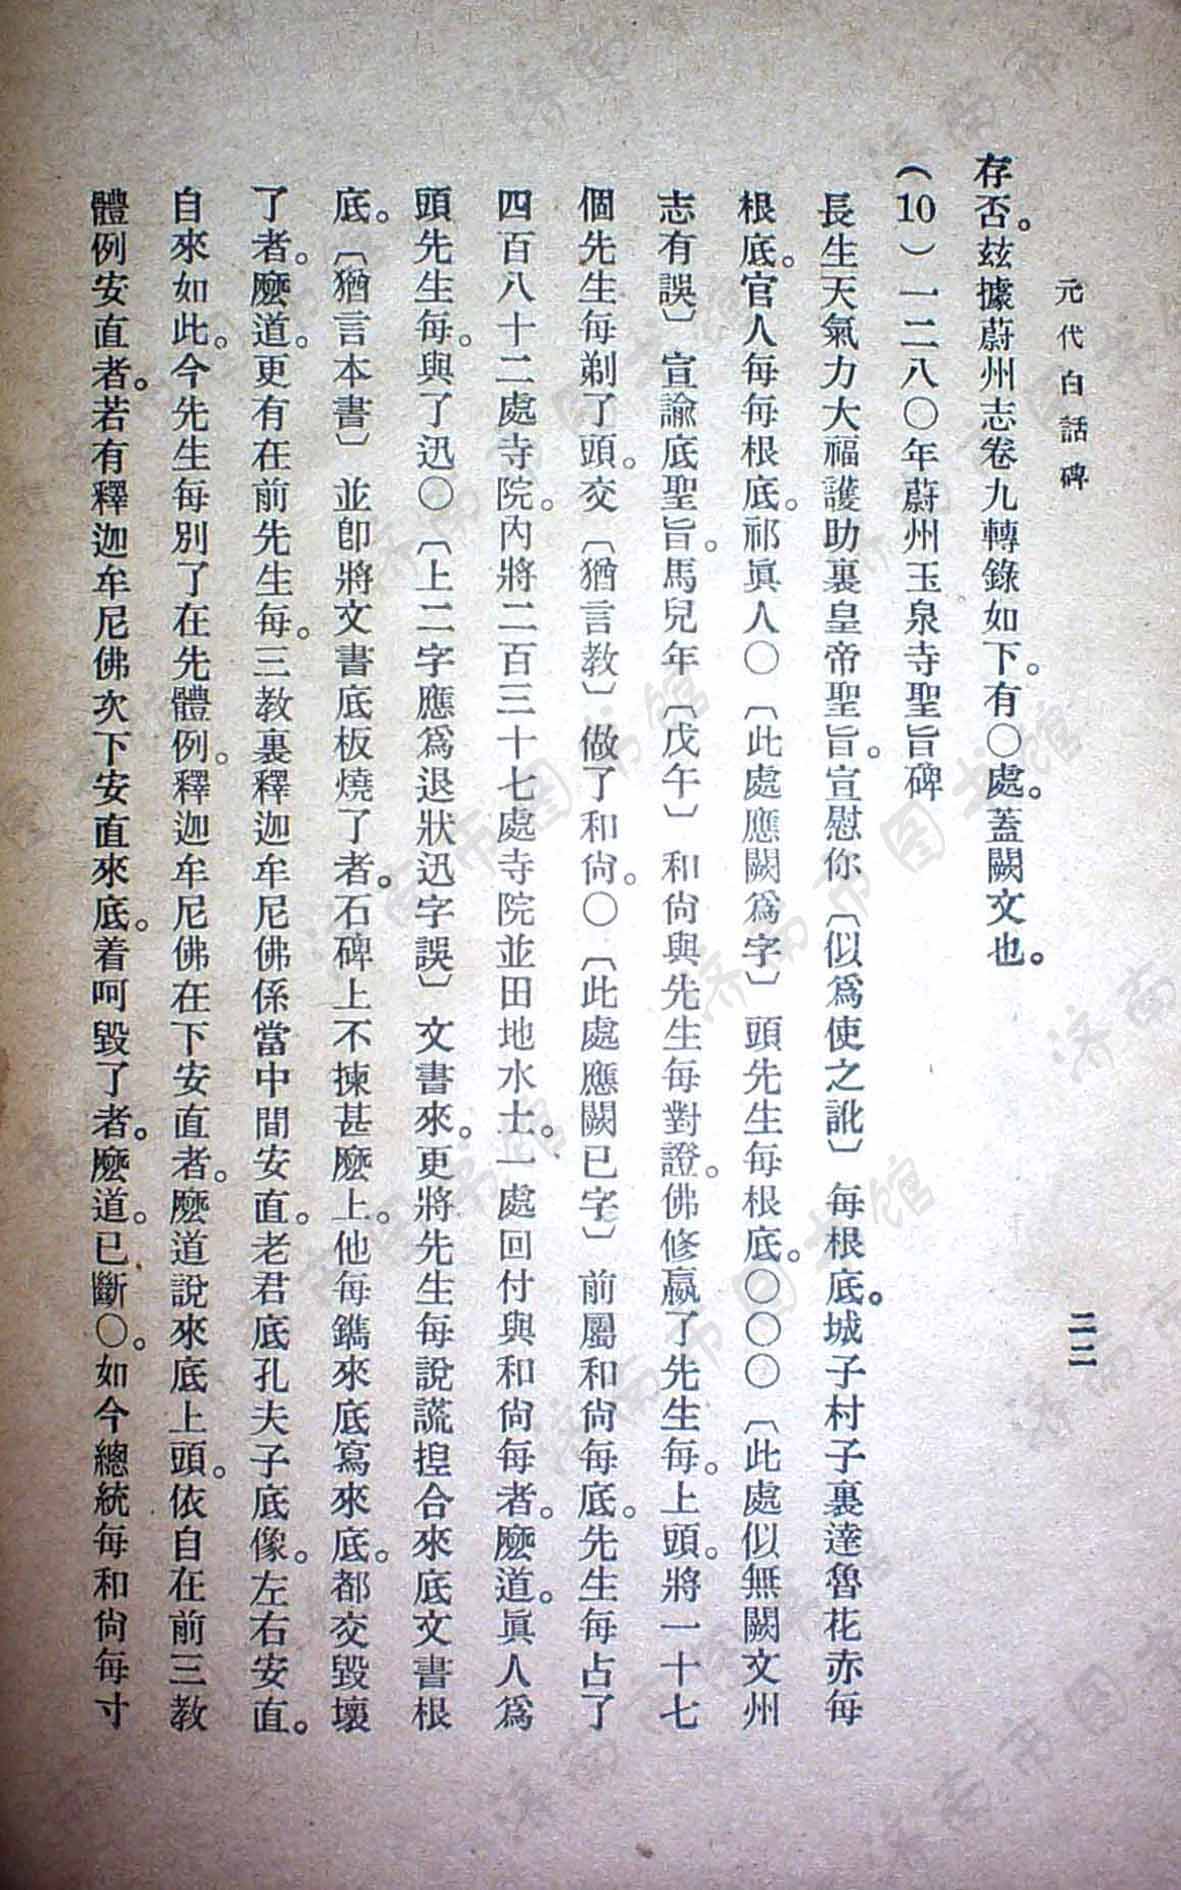 元代白話碑
二二
存否。玆據蔚州志卷九轉錄如下。有〇處。蓋闕文也。
（10）一二八〇年蔚州玉泉寺聖旨碑
長生天氣力大福護助裏皇帝聖旨。宣慰你〔似爲使之訛〕每根底。城子村子裏達魯花赤每
根底。官人每每根底。祁眞人〇〔此處應闕爲字〕頭先生每根底。〇〇〇〔此處似無闕文州
志有誤〕宣諭底聖旨。馬兒年〔戊午〕和尙與先生每對證。佛修贏了先生每。上頭。將一十七
個先生每剃了頭。交〔猶言教〕做了和尙。〇〔此處應闕已字〕前屬和尙每底。先生每占了
四百八十二處寺院。內將二百三十七處寺院並田地水土。一處回付與和尙每者。麽道。眞人爲
頭先生每。與了迅〇〔上二字應爲退狀迅字誤〕文書來。更將先生每說謊揑合來底文書根
底。〔猶言本書〕並卽將文書底板燒了者。石碑上不揀甚麽上。他每鐫來底寫來底。都交毀壞
了者。麽道。更有在前先生每。三教裏釋迦牟尼佛係當中間安直。老君底孔夫子底像。左右安直。
自來如此。今先生每別了在先體例。釋迦牟尼佛在下安直者。麽道說來底上頭。依自在前三教
體例安直者。若有釋迦牟尼佛次下安直來底。着呵毀了者。麽道。已斷〇。如今總統每和尙每寸